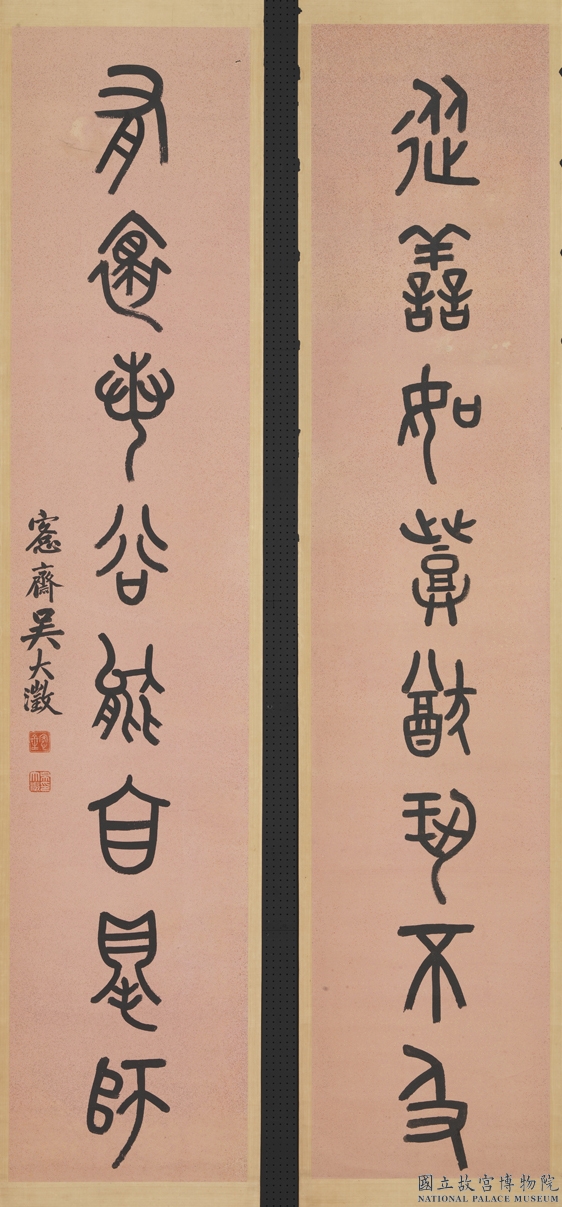 從善如登猶恐不及
有奉公能自得師
愙齋吳大澂
國立故宮博物院
NATIONAL PALACE MUSEUM